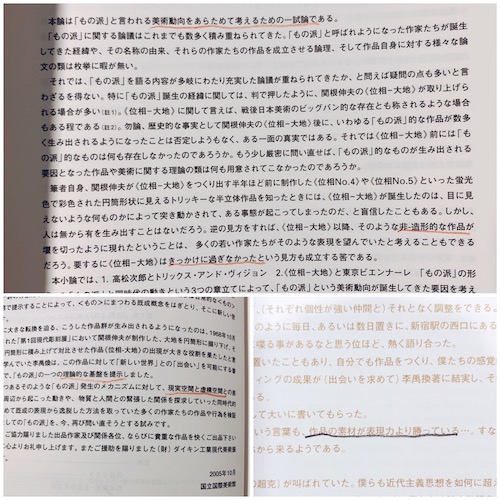 本論は「もの派」と言われる美術動向をあらためて考えるための一試論である。
「もの派」に関する論議はこれまでも数多く積み重ねられてきた。「もの派」と呼ばれるようになった作家たちが誕生
してきた経緯や、その名称の由来、それらの作家たちの作品を成立させる論理、そして作品自身に対する様々な論
文の類は枚挙に暇が無い。
それでは、「もの派」を語る内容が多岐にわたり充実した論議が重ねられてきたか、と問えば疑問の点も多いと言
わざるを得ない。特に「もの派」誕生の経緯に関しては、判で押したように、関根伸夫の〈位相-大地〉が取り上げら
れる場合が多い(註1)。〈位相-大地〉に関して言えば、戦後日本美術のビッグバン的な存在とも称されるような場合
もある程である(註2)。勿論、歴史的な事実として関根伸夫の〈位相-大地〉後に、いわゆる「もの派」的な作品が数多
く生み出されるようになったことは否定しようもなく、ある一面の真実ではある。それでは〈位相-大地〉前には「も
の派」的なものは何も存在しなかったのであろうか。もう少し厳密に問い直せば、「もの派」的なものが生み出される
要因となった作品や美術に関する理論の類は何も用意されてこなかったのであろうか。
筆者自身、関根伸夫が〈位相-大地〉をつくり出す半年ほど前に制作した〈位相No.4〉や〈位相No.5〉といった蛍光
色で彩色された円筒形状に見えるトリッキーな半立体作品を知ったときには、〈位相-大地〉が誕生したのは、目に見
えないような何ものかによって突き動かされて、ある事態が起こってしまったのだ、と盲信したこともある。しかし、
人は無から有を生み出すことはないだろう。逆の見方をすれば、〈位相-大地〉以降、そのような非-造形的な作品が
堰を切ったように現れたということは、多くの若い作家たちがそのような表現を望んでいたと考えることもできる
だろう。要するに〈位相-大地〉はきっかけに過ぎなかったという見方も成立する筈である。
本小論では、1. 高松次郎とトリックス・アンド・ヴィジョン 2.〈位相-大地〉と東京ビエンナーレ 「もの派」の形
という3つの章立てによって、「もの派」という美術動向が誕生してきた要因を考え
提示することによって、〈もの〉にまつわる既成概念をはぎとり、そこに新しい世
大きな転換を迫る、こうした作品群が生み出されるようになったのは、1968年10月
た「第1回現代彫刻展」において関根伸夫が制作した、大地を円筒形に掘り下げ、そ
円筒形に積み上げて対比させた作品《位相-大地》の出現が大きな役割を果したと言
学んでいた李禹煥は、この作品に対して「新しい世界」との「出会い」を可能にする
で、「もの派」の一つの理論的な基盤を提示しました。
あるそのような「もの派」発生のメカニズムに対して、現実空間と虚構空間との差
周辺から起こった動きや、物質と人間との緊張した関係を探求していった同時代的
めて既成の表現から逸脱した方法を取っていた多くの作家たちの作品や行為を検証
しての「もの派」を、今、再び問い直そうとする試みです。
ご協力賜りました出品作家及び関係各位、ならびに貴重な作品を快くご出品下さい
心よりお礼申し上げます。またご援助を賜りました(財)ダイキン工業現代美術振興
2005年10月
国立国際美術館
、(それぞれ個性が強い仲間)とそれとなく調整をできる。
のように毎日、あるいは数日置きに、新宿駅の西口にある
喋る事があるなと思う位ほど、熱く語り合った。
置いたこともあり、自分でも作品をつくり、僕たちの感覚
ィングの成果が〈出会いを求めて〉李禹煥著に結実し、そ
いる。
して大いに書いてもらった。
いう言葉も、作品の素材が表現力より勝っている…、すな
から来るようである。
の超克〉が叫ばれていた。僕らも近代主義思想を如何に超